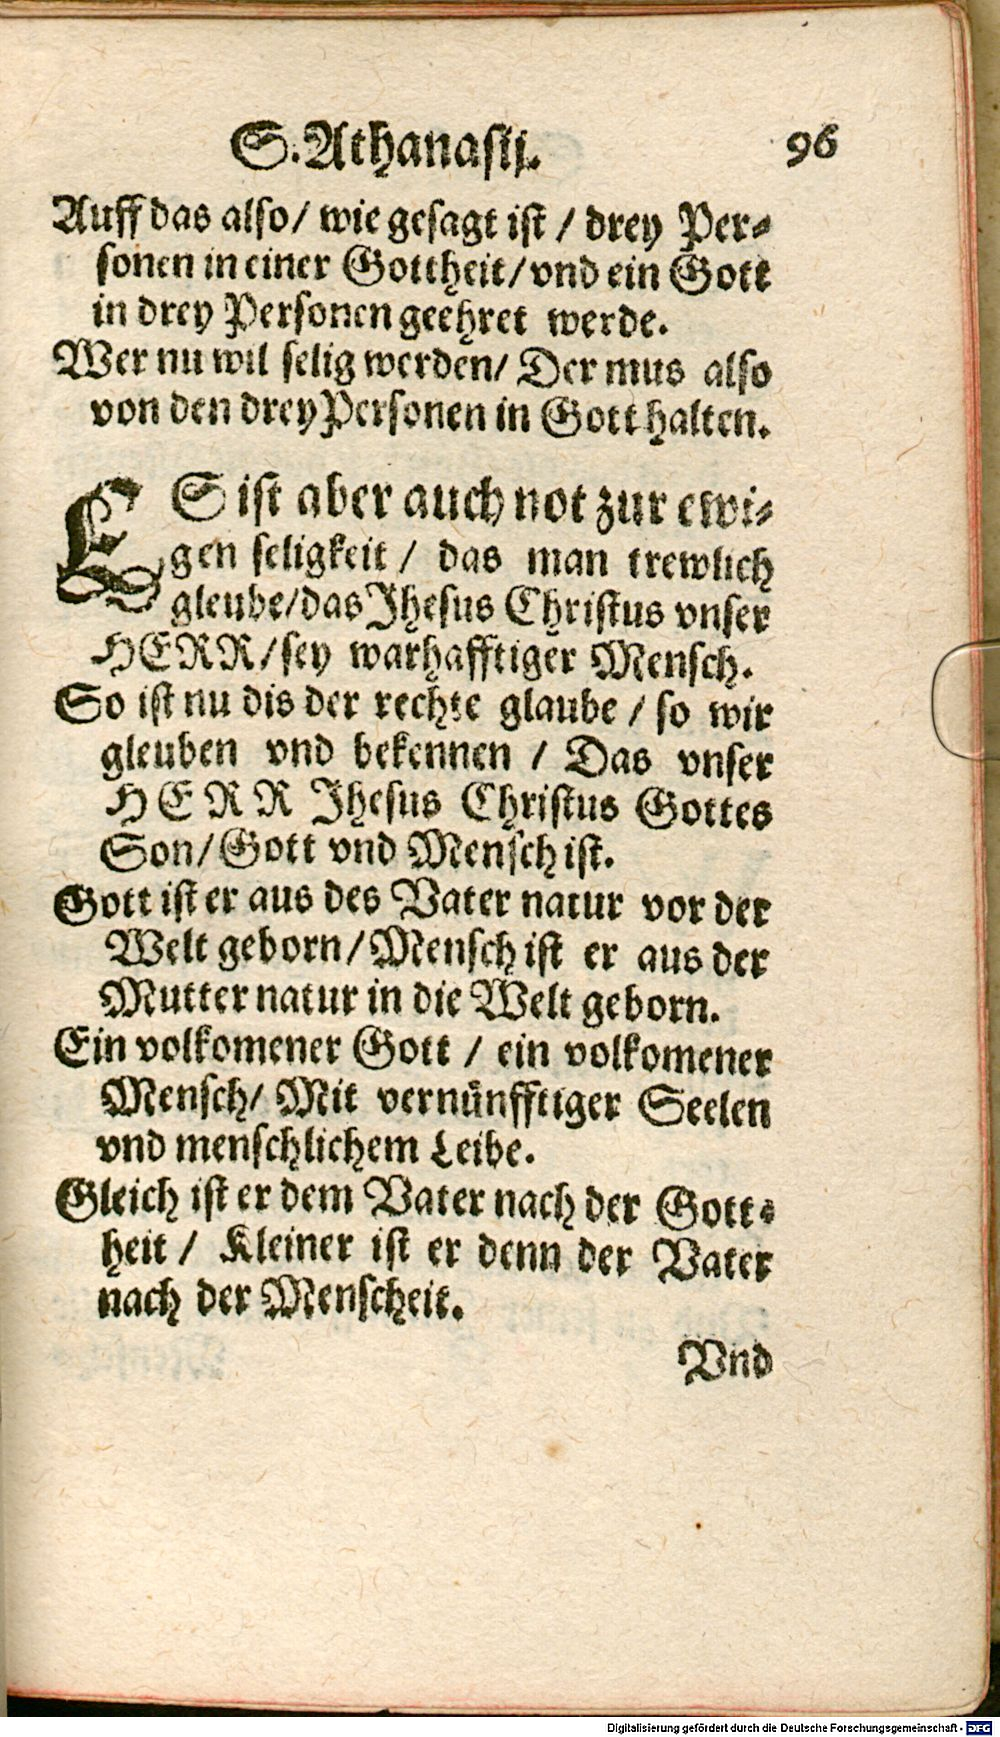 S. Athanasij. 96
Auff das also / wie gesagt ist / drey Per-
sonen in einer Gottheit / vnd ein Gott
in drey Personen geehret werde.
Wer nu wil selig werden / Der mus also
von den drey Personen in Gott halten.
ES ist aber auch not zur ewi-
gen seligkeit / das man trewlich
gleube / das Jhesus Christus vnser
HERR / sey warhafftiger Mensch.
So ist nu dis der rechte glaube / so wir
gleuben vnd bekennen / Das vnser
HERR Jhesus Christus Gottes
Son / Gott vnd Mensch ist.
Gott ist er aus des Vater natur vor der
Welt geborn / Mensch ist er aus der
Mutter natur in die Welt geborn.
Ein volkomener Gott / ein volkomener
Mensch / Mit vernünfftiger Seelen
vnd menschlichem Leibe.
Gleich ist er dem Vater nach der Gott-
heit / Kleiner ist er denn der Vater
nach der Menscheit.
Vnd
Digitalisierung gefördert durch die Deutsche Forschungsgemeinschaft - DFG